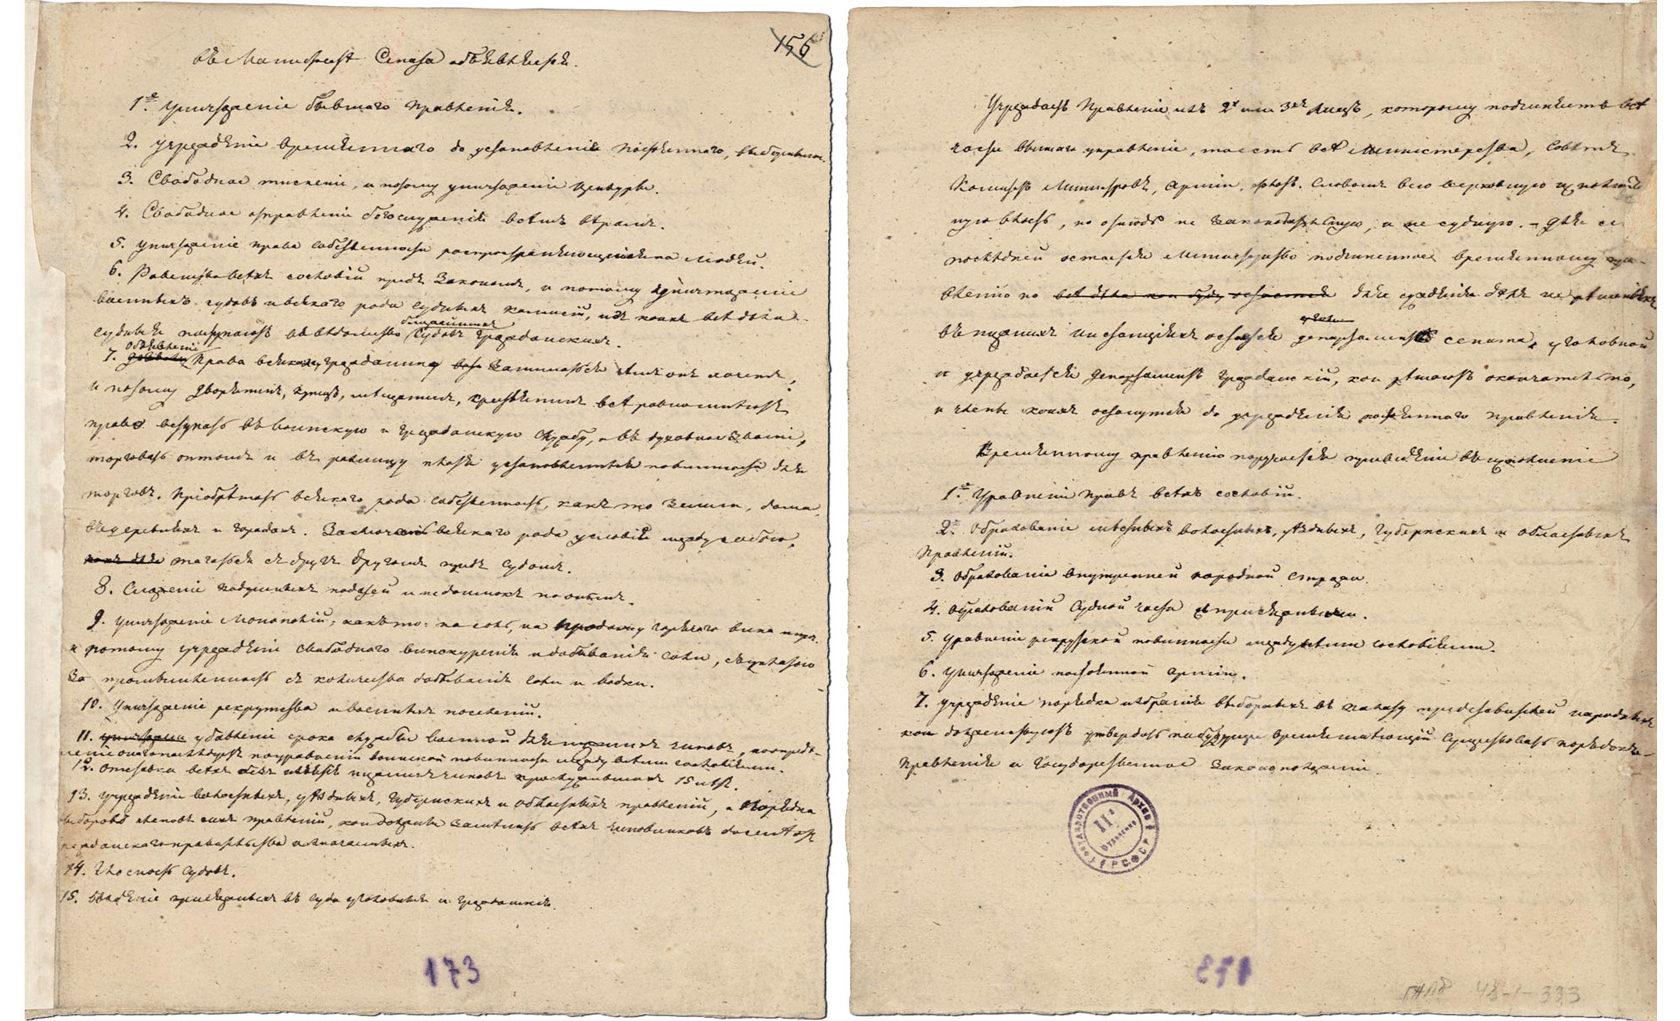 156
въ Манифестѣ Сената объявляется.
1е. Уничтоженіе бывшаго правленія.
2. учрежденіе временнаго до установленія постояннаго, выборными.
3. Свободное тисненіе, и потому уничтоженіе цензуры.
4. Свободное отправленіе богослуженія всѣмъ вѣрамъ.
5. уничтоженіе права собственности распространяющейся на людей.
6. Равенство всѣхъ сословій предъ Закономъ, и потому уничтоженіе
военныхъ судовъ и всякаго рода судныхъ комисій, изъ коихъ всѣ дѣла
судныя поступаютъ въ вѣдомство ближайшихъ Судовъ гражданскихъ.
7. объявленіе Права всякому гражданину заниматься чѣмъ онъ хочетъ,
и потому дворянинъ, купецъ, мѣщанинъ, крестьянинъ всѣ равно имѣютъ
право вступать въ воинскую и гражданскую службу, и въ духовное званіе,
торговать оптомъ и въ розницу платя установленныя повинности для
торговъ. Пріобрѣтать всякаго рода собственность, какъ то земли, дома
въ деревняхъ и городахъ. Заключать всякаго рода условія между собою,
тягаться другъ съ другомъ предъ судомъ.
8. Сложеніе подушныхъ податей и недоимокъ по онымъ.
9. уничтоженіе Монополій, какъ то: на соль, на продажу горячаго вина и проч.
и потому учрежденіе свободнаго винокуренія и добыванія соли, съ уплатою
за промышленность съ количества добыванія соли и водки.
10. Уничтоженіе рекрутства и военныхъ поселеній.
11. убавленіе срока службы военной для нижнихъ чиновъ, и опредѣ-
леніе онаго послѣдуетъ по уравненіи воинской повинности между всѣми сословіями.
12. отставка всѣхъ безъ изъятія нижнихъ чиновъ прослужившихъ 15 лѣтъ.
13. учрежденіе волостныхъ, уѣздныхъ, губернскихъ и областныхъ правленій, и порядка
выборовъ членовъ сихъ правленій, кои должны замѣнить всѣхъ чиновниковъ доселѣ отъ
гражданскаго правительства назначаемыхъ.
14. Гласность судовъ.
15. введеніе присяжныхъ въ суды уголовныя и гражданскія.
173
Учреждаетъ Правленіе изъ 2х или 3хъ лицъ, которому подчиняетъ всѣ
части высшаго управленія, то есть всѣ Министерства, Совѣтъ,
Комитетъ Министровъ, арміи, флотъ. Словомъ всю верховную исполнитель
ную власть, но отнюдь не законодательную, и не судную. – Для сей
послѣдней остается Министерство подчиненное временному пра-
вленію но для сужденія дѣлъ не рѣшенныхъ
въ нижнихъ инстанціяхъ остается департаментъ сената уголовной
и учреждается департаментъ гражданскій, кои рѣшаютъ окончательно,
и члены коихъ останутся до учрежденія постояннаго правленія.
Временному правленію поручается приведеніе въ исполненіе
1е. Уравненіе правъ всѣхъ сословій.
2е. Образованіе мѣстныхъ волостныхъ, уѣздныхъ, губернскихъ и областныхъ
Правленій.
3. Образованіе внутренней народной стражи.
4. образованіе судной части съ присяжными.
5. уравненіе рекрутской повинности между всѣми сословіями.
6. уничтоженіе постоянной арміи.
7. учрежденіе порядка избранія выборныхъ въ палату представителей народныхъ
кои долженствуютъ утвердить на будущее время имѣющій существовать порядокъ
Правленія и Государственное Законоположеніе.
Государственный Архив Р.С.Ф.С.Р.
IIе
Отделение
48-1-333